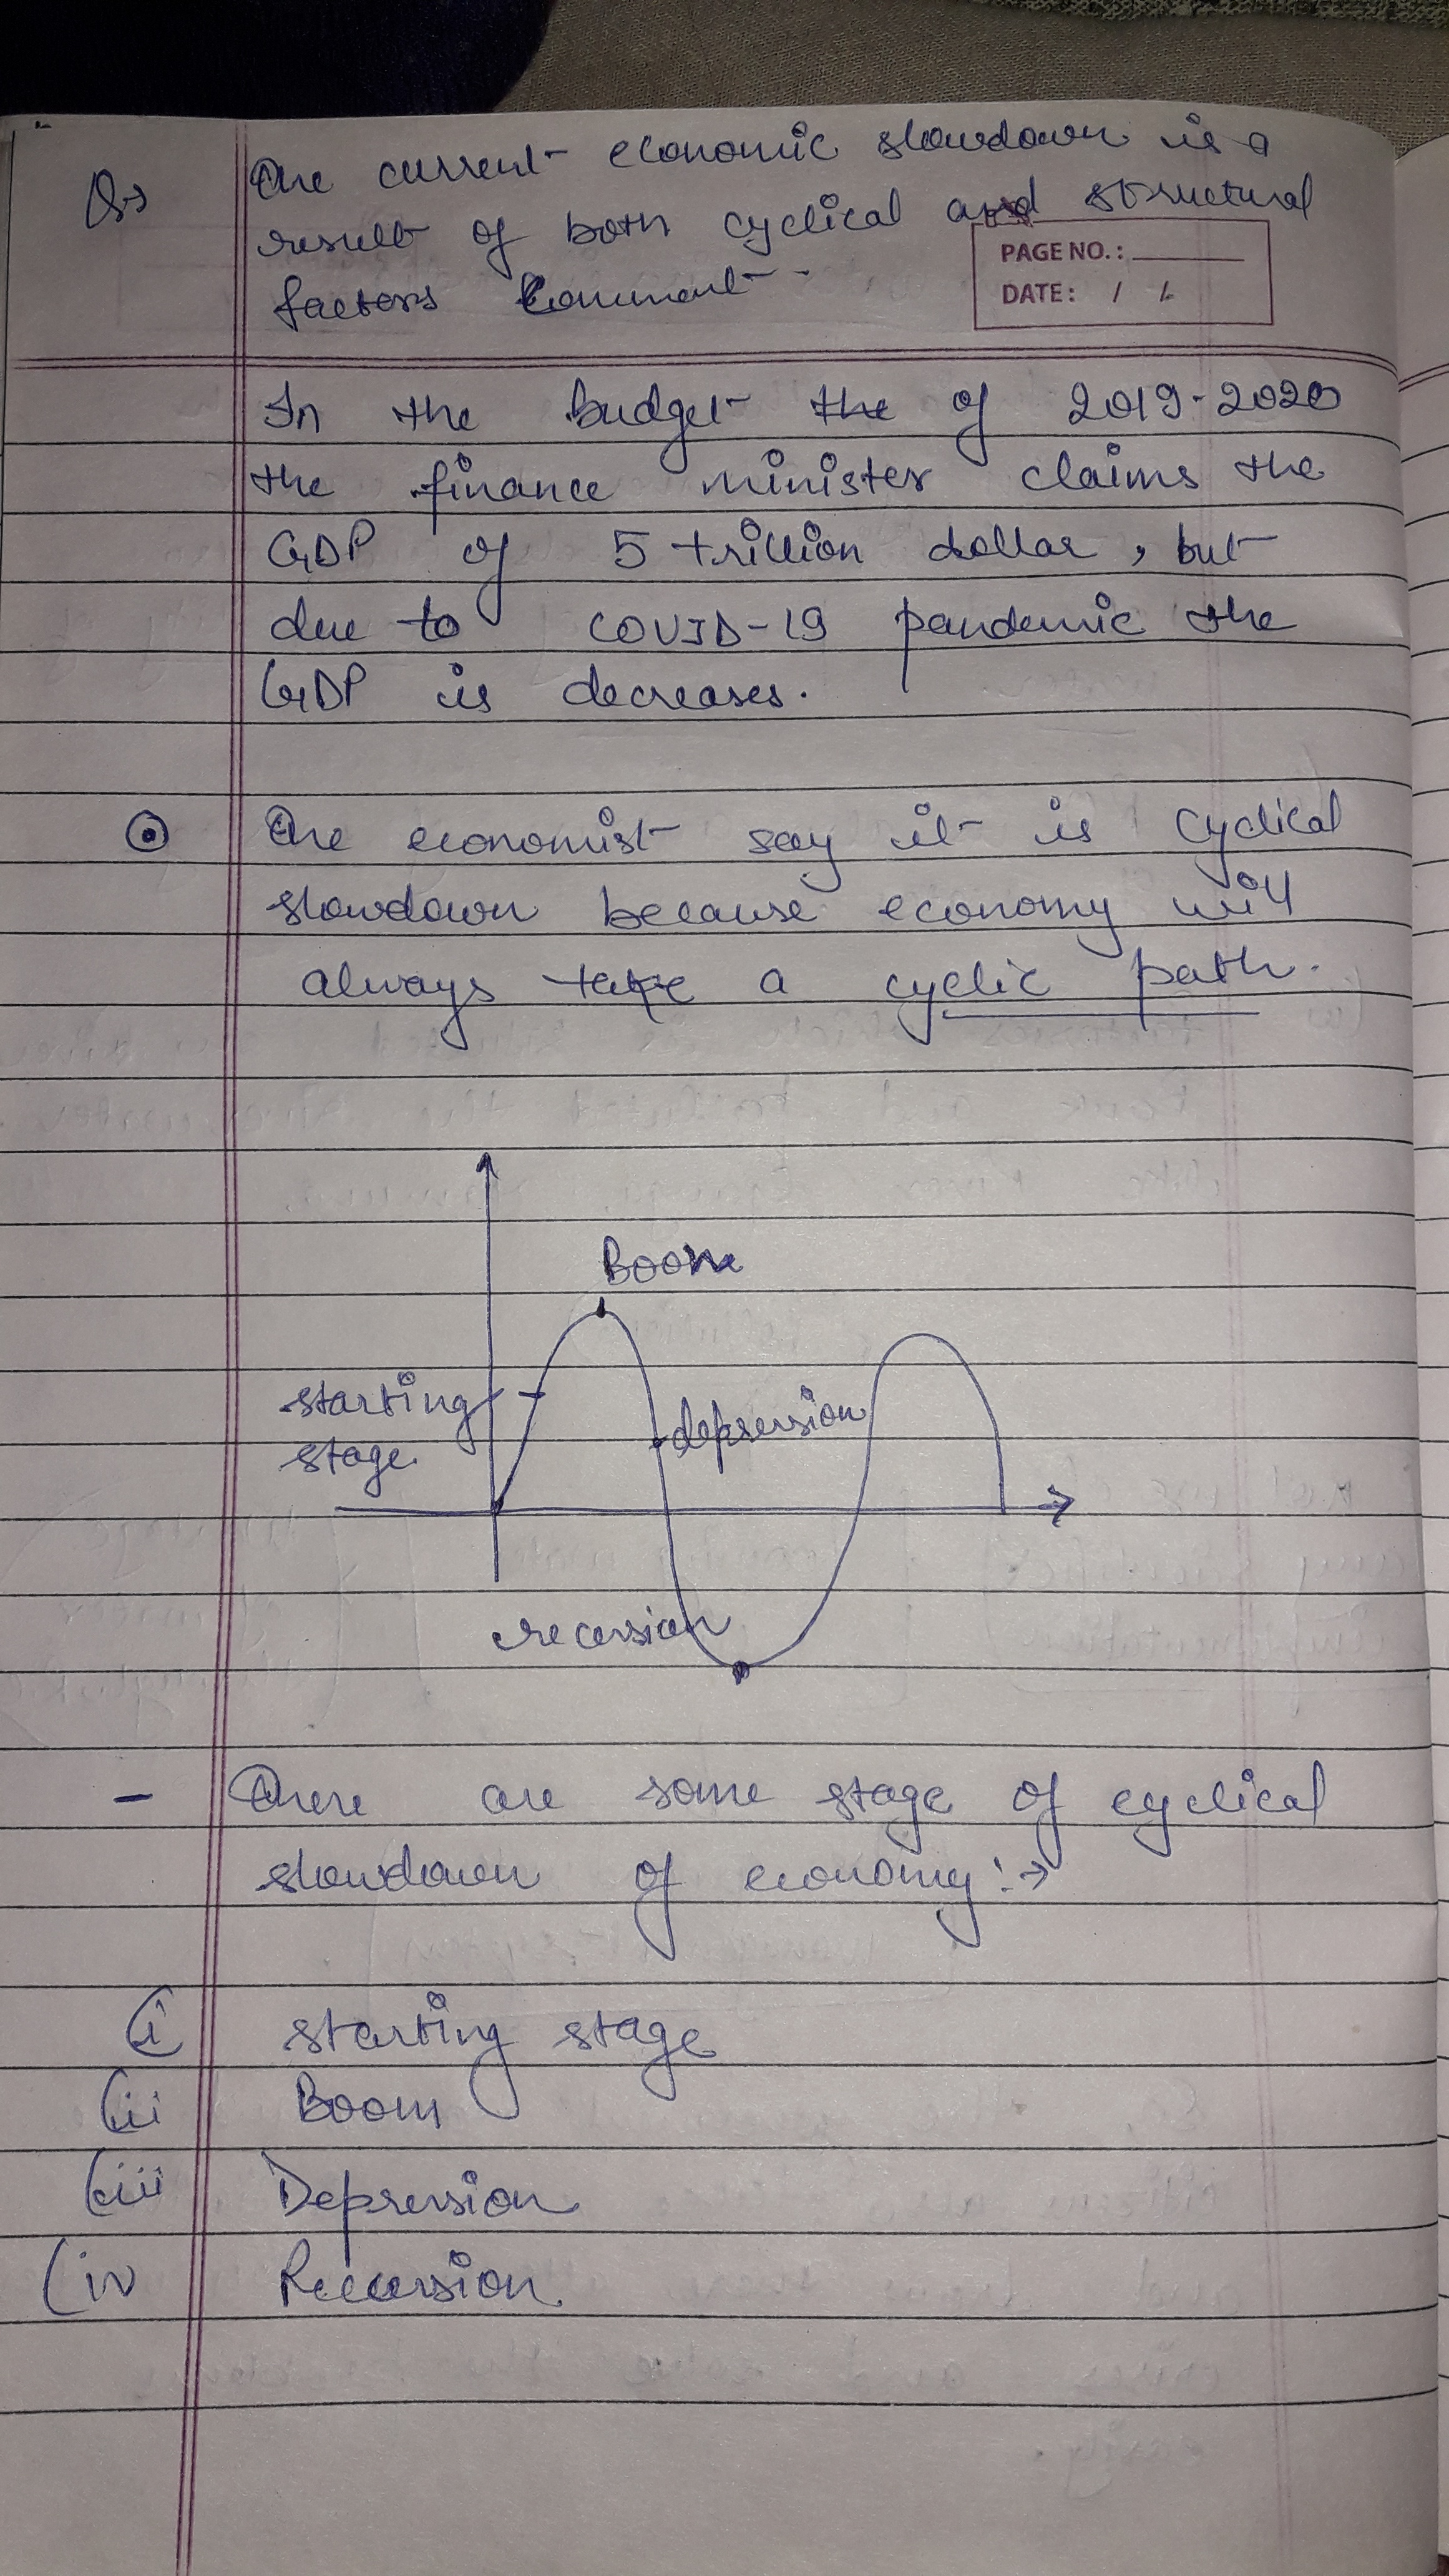 Q→ The current economic slowdown is a
result of both cyclical and structural
factors Comment
PAGE NO.:
DATE: / /
In the budget the of 2019-2020
the finance minister claims the
GDP of 5 trillion dollar, but
due to COVID-19 pandemic the
GDP is decreases.
The economist say it is cyclical
slowdown because economy will
always take a cyclic path.
Boom
starting
stage
depression
recession
- There are some stage of cyclical
slowdown of economy:→
(i starting stage
(ii Boom
(iii Depression
(iv Recession